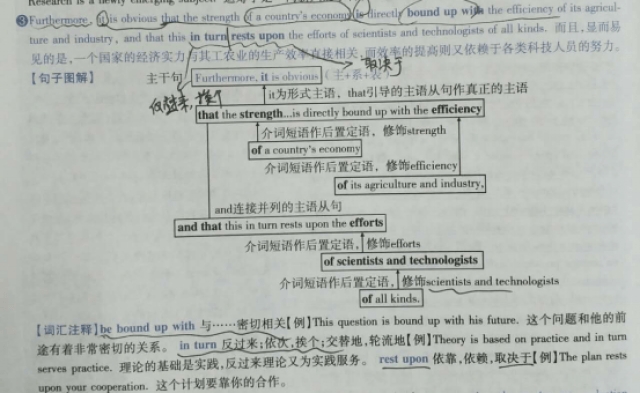 Research is a newly emerging subject.
❸Furthermore, it is obvious that the strength of a country's economy is directly bound up with the efficiency of its agricul-
ture and industry, and that this in turn rests upon the efforts of scientists and technologists of all kinds. 而且,显而易
见的是,一个国家的经济实力与其工农业的生产效率直接相关,而效率的提高则又依赖于各类科技人员的努力。
取决于
【句子图解】 主干句 Furthermore, it is obvious (主+系+表)
反过来,挨个
it为形式主语,that引导的主语从句作真正的主语
that the strength...is directly bound up with the efficiency
介词短语作后置定语,修饰strength
of a country's economy
介词短语作后置定语,修饰efficiency
of its agriculture and industry,
and连接并列的主语从句
and that this in turn rests upon the efforts
介词短语作后置定语,修饰efforts
of scientists and technologists
介词短语作后置定语,修饰scientists and technologists
of all kinds.
【词汇注释】be bound up with 与……密切相关【例】This question is bound up with his future. 这个问题和他的前
途有着非常密切的关系。 in turn 反过来;依次,挨个;交替地,轮流地【例】Theory is based on practice and in turn
serves practice. 理论的基础是实践,反过来理论又为实践服务。 rest upon 依靠,依赖,取决于【例】The plan rests
upon your cooperation. 这个计划要靠你的合作。